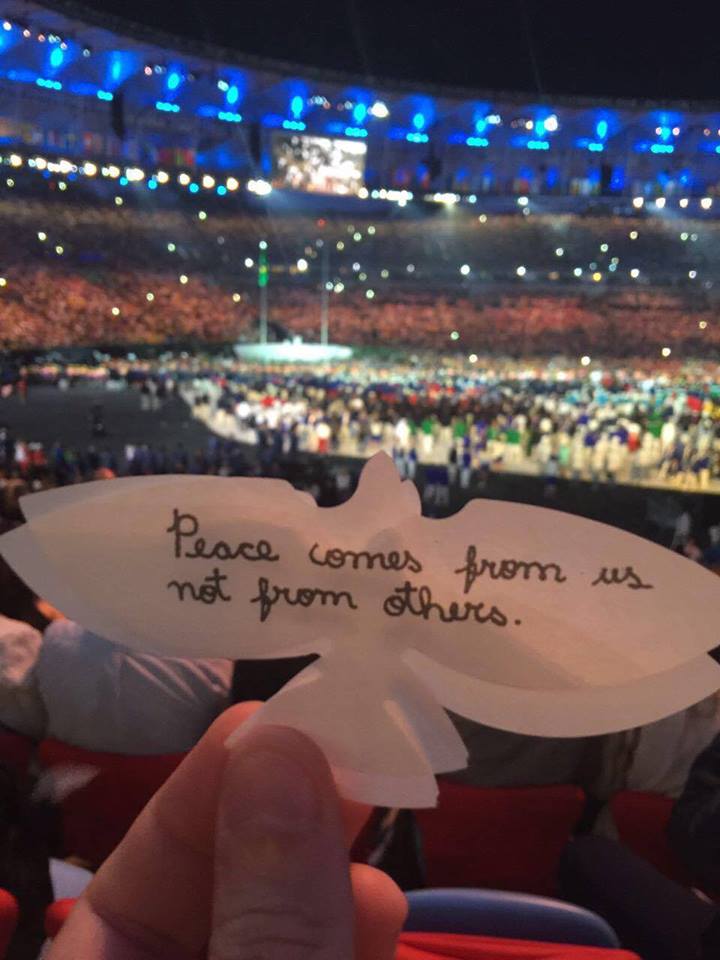 Peace comes from us
not from others.